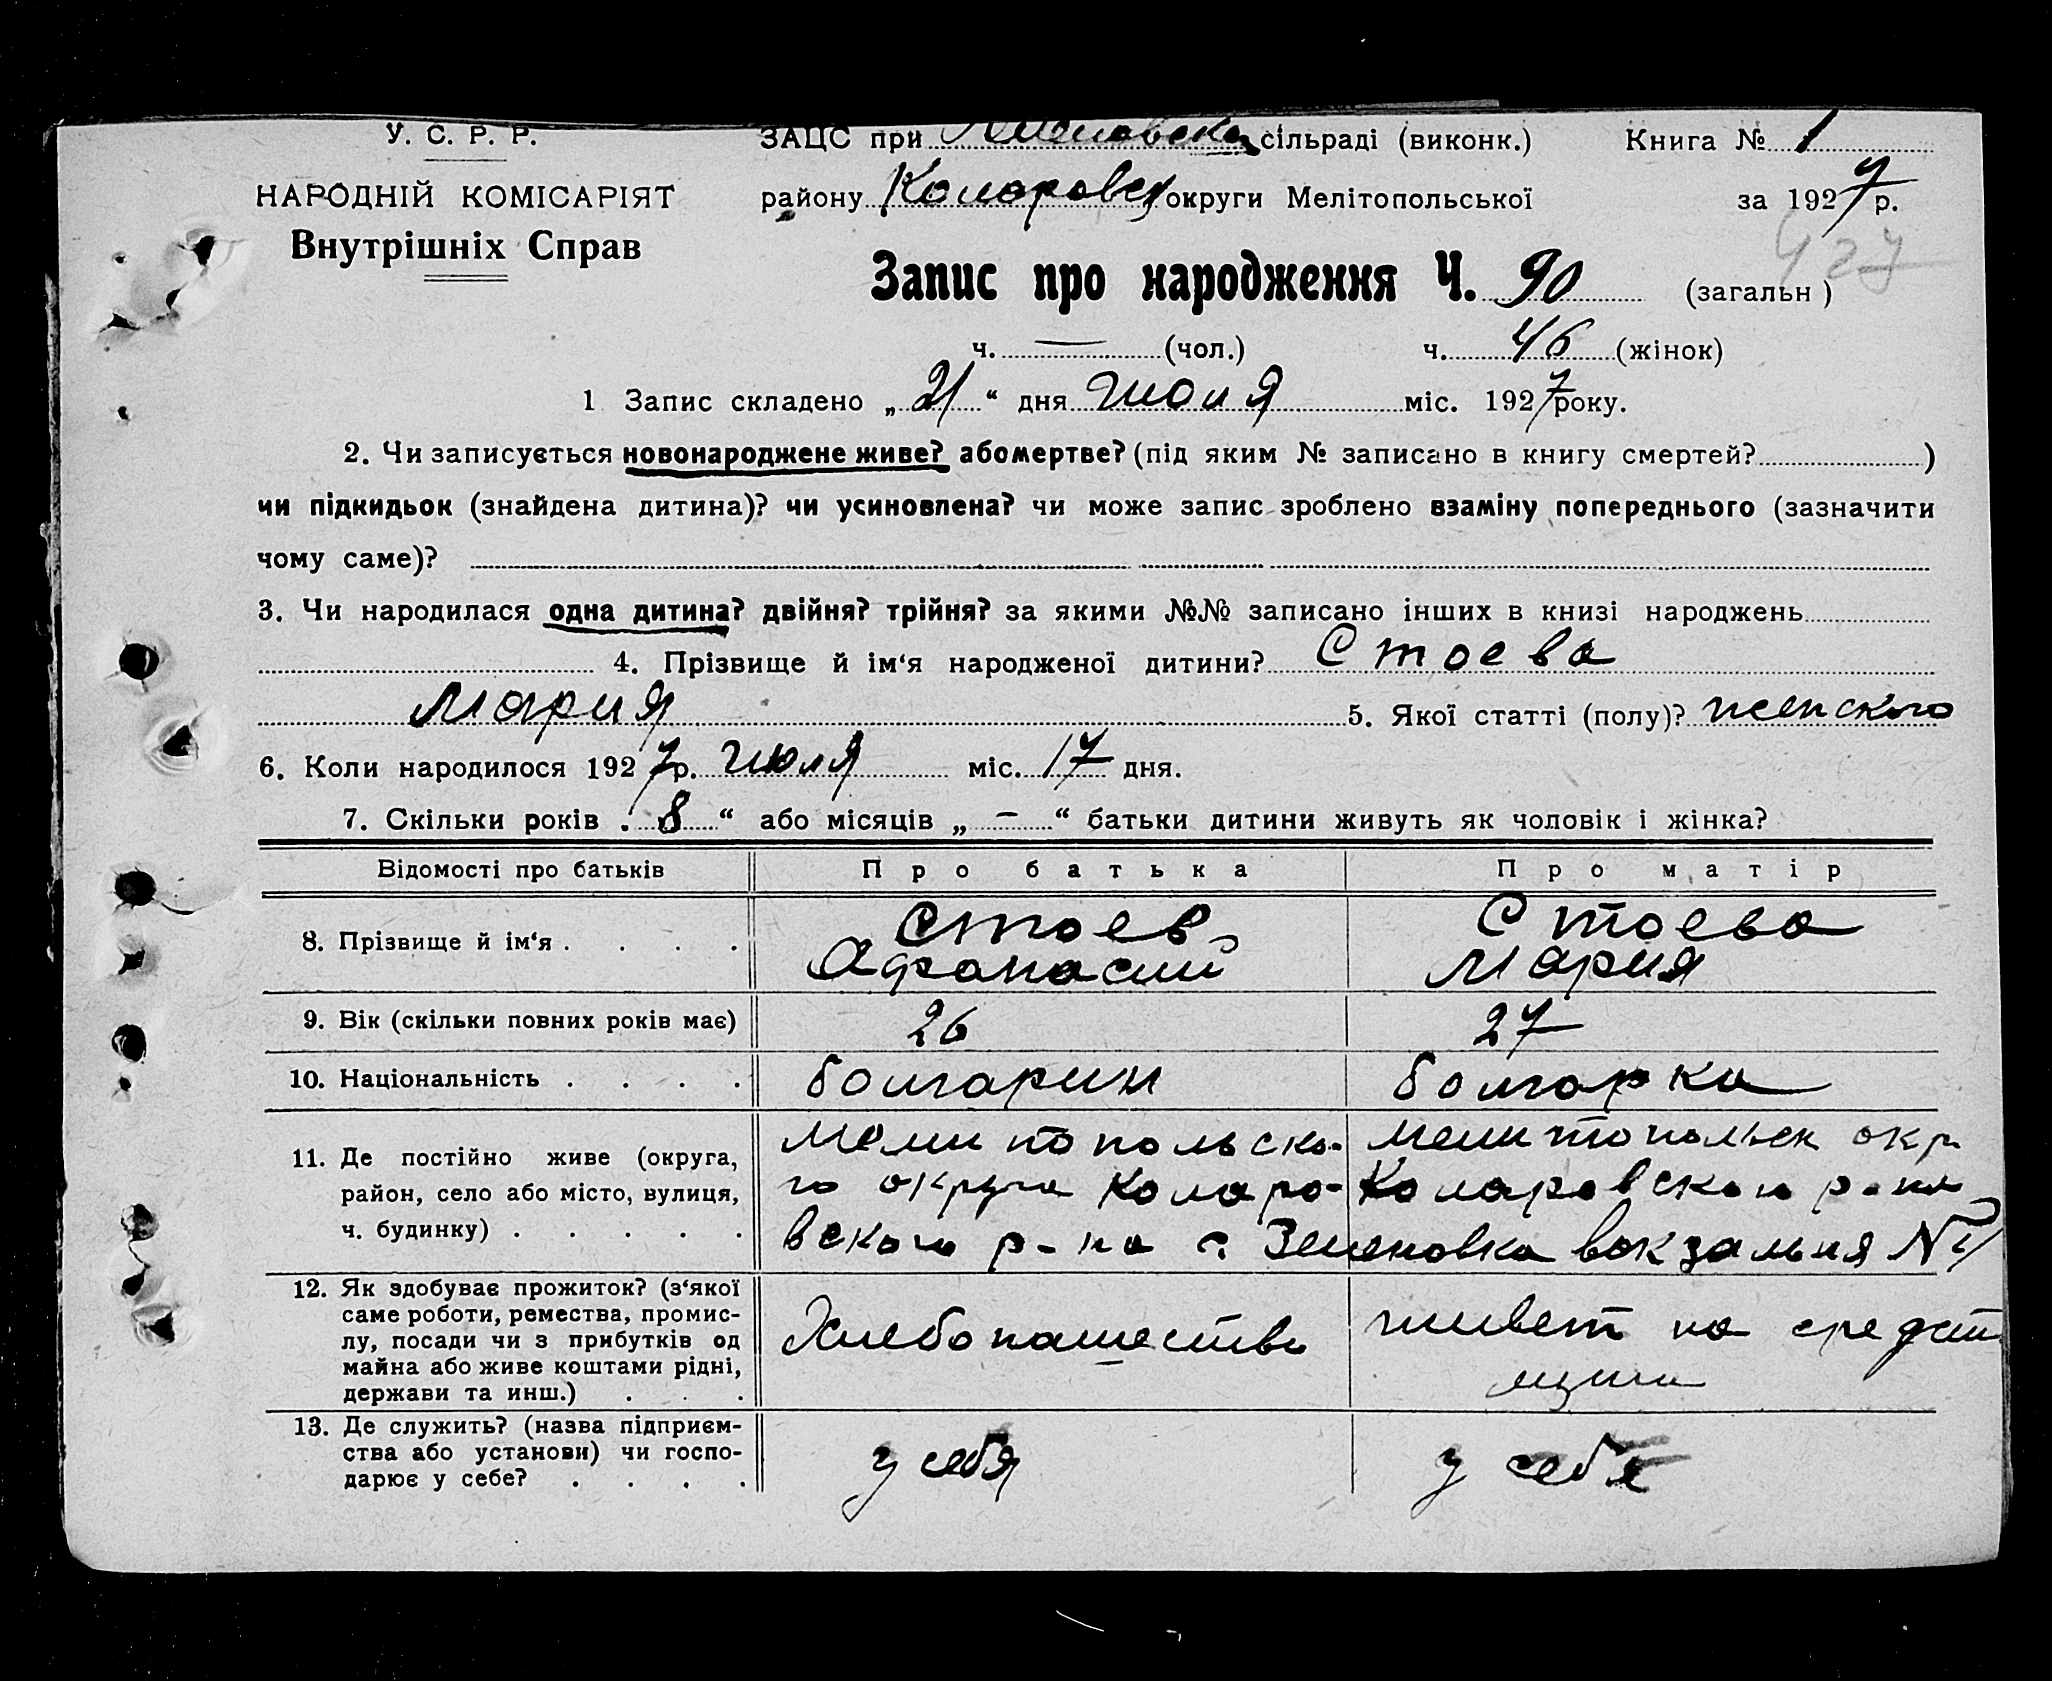 У. С. Р. Р.
НАРОДНІЙ КОМІСАРІЯТ
Внутрішніх Справ
ЗАЦС при сільраді (виконк.) Книга № 1
району Коларовск округи Мелітопольської за 1927 р.
427
Запис про народження Ч. 90 (загальн)
ч. — (чол.) ч. 46 (жінок)
1 Запис складено „21“ дня Июля міс. 1927 року.
2. Чи записується новонароджене живе? або мертве? (під яким № записано в книгу смертей? )
чи підкидьок (знайдена дитина)? чи усиновлена? чи може запис зроблено взаміну попереднього (зазначити
чому саме)?
3. Чи народилася одна дитина? двійня? трійня? за якими №№ записано інших в книзі народжень
4. Прізвище й ім‘я народженої дитини? Стоева
Мария 5. Якої статті (полу)? женского
6. Коли народилося 1927 р. Июля міс. 17 дня.
7. Скільки років „8“ або місяців „—“ батьки дитини живуть як чоловік і жінка?
Відомості про батьків Про батька Про матір
8. Прізвище й ім‘я . . . . Стоев Афанасий Стоева Мария
9. Вік (скільки повних років має) 26 27
10. Національність . . . . болгарин болгарка
11. Де постійно живе (округа,
район, село або місто, вулиця,
ч. будинку) . . . . .
Мелитопольско-
го округа Коларо-
вского р-на с. Зеленовка вокзальня №
Мелитопольск окр
Коларовского р-на
12. Як здобуває прожиток? (з‘якої
саме роботи, ремества, промис-
лу, посади чи з прибутків од
майна або живе коштами рідні,
держави та инш.) . . .
Хлебопашество
живет на средст
мужа
13. Де служить? (назва підприєм-
ства або установи) чи госпо-
дарює у себе? . . . .
у себя
у себя